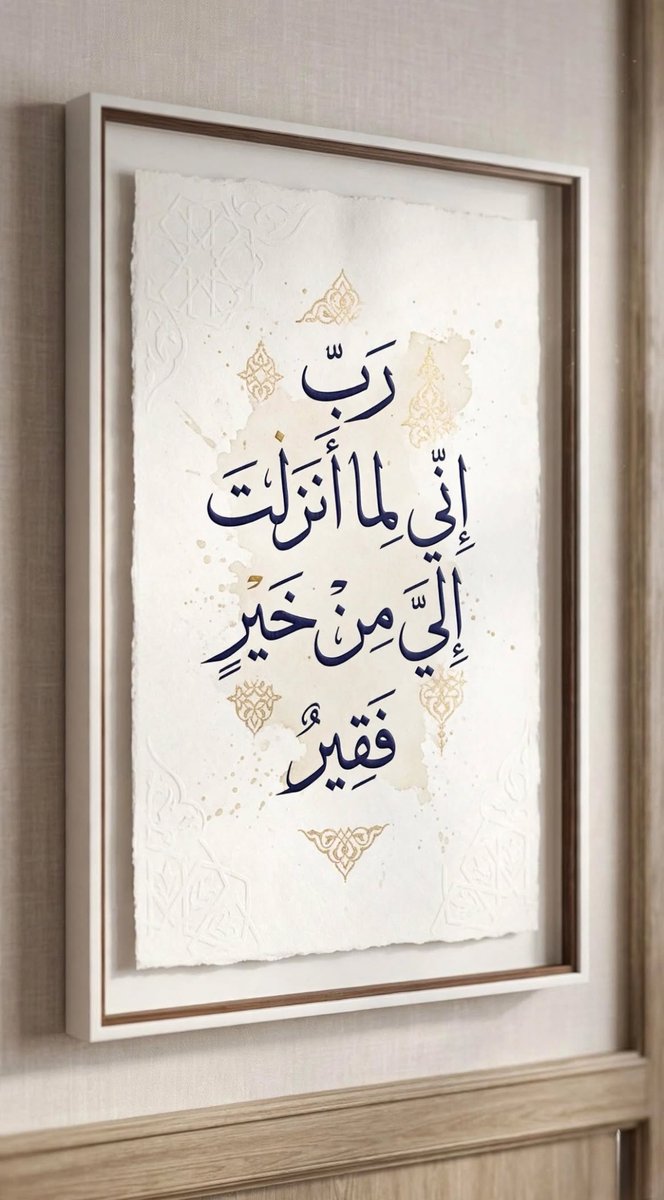 رَبِّ
إِنِّي لِمَا أَنَزَلْتَ
إِلَيَّ مِنْ خَيْرٍ
فَقِيرٌ